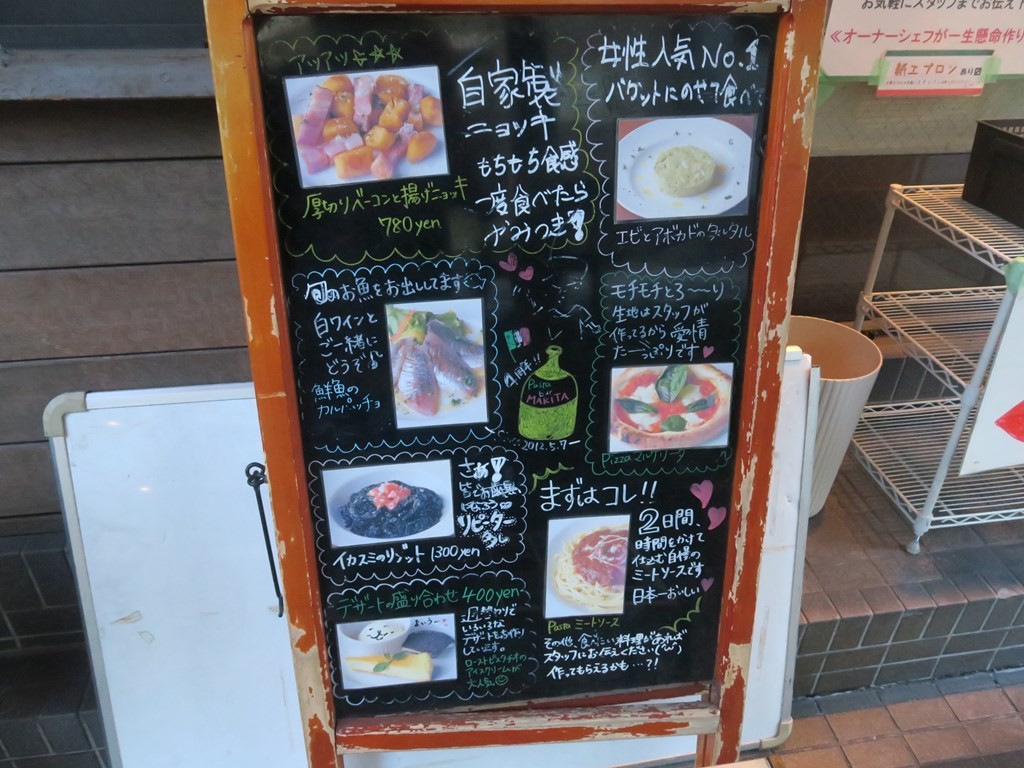 アツアツ
自家製
ニョッキ
もちもち食感
一度食べたら
やみつき!
厚切りベーコンと揚げニョッキ
780yen
女性人気No.1
バゲットにのせて食べ
エビとアボカドのタルタル
旬のお魚をお出ししてます
白ワインと
ご一緒に
どうぞ
鮮魚の
カルパッチョ
4周年!!
Pasta
by
MAKITA
2012.5.7〜
モチモチとろ〜〜り
生地はスタッフが
作ってるから愛情
たーっぷりです
Pizza マルゲリータ
さぁ!
リピーター
イカスミのリゾット 1300yen
まずはコレ!!
2日間、
時間をかけて
仕込む自慢の
ミートソースです
日本一おいしい
Pasta ミートソース
デザートの盛り合わせ 400yen
いろいろな
デザートも手作り
しています。
ローストピスタチオの
アイスクリームが
大人気
その他、食べたい料理があれば
スタッフにお伝えください
作ってもらえるかも…?!
お気軽にスタッフまでお伝え下
≪オーナーシェフが一生懸命作り
紙エプロン あり〼